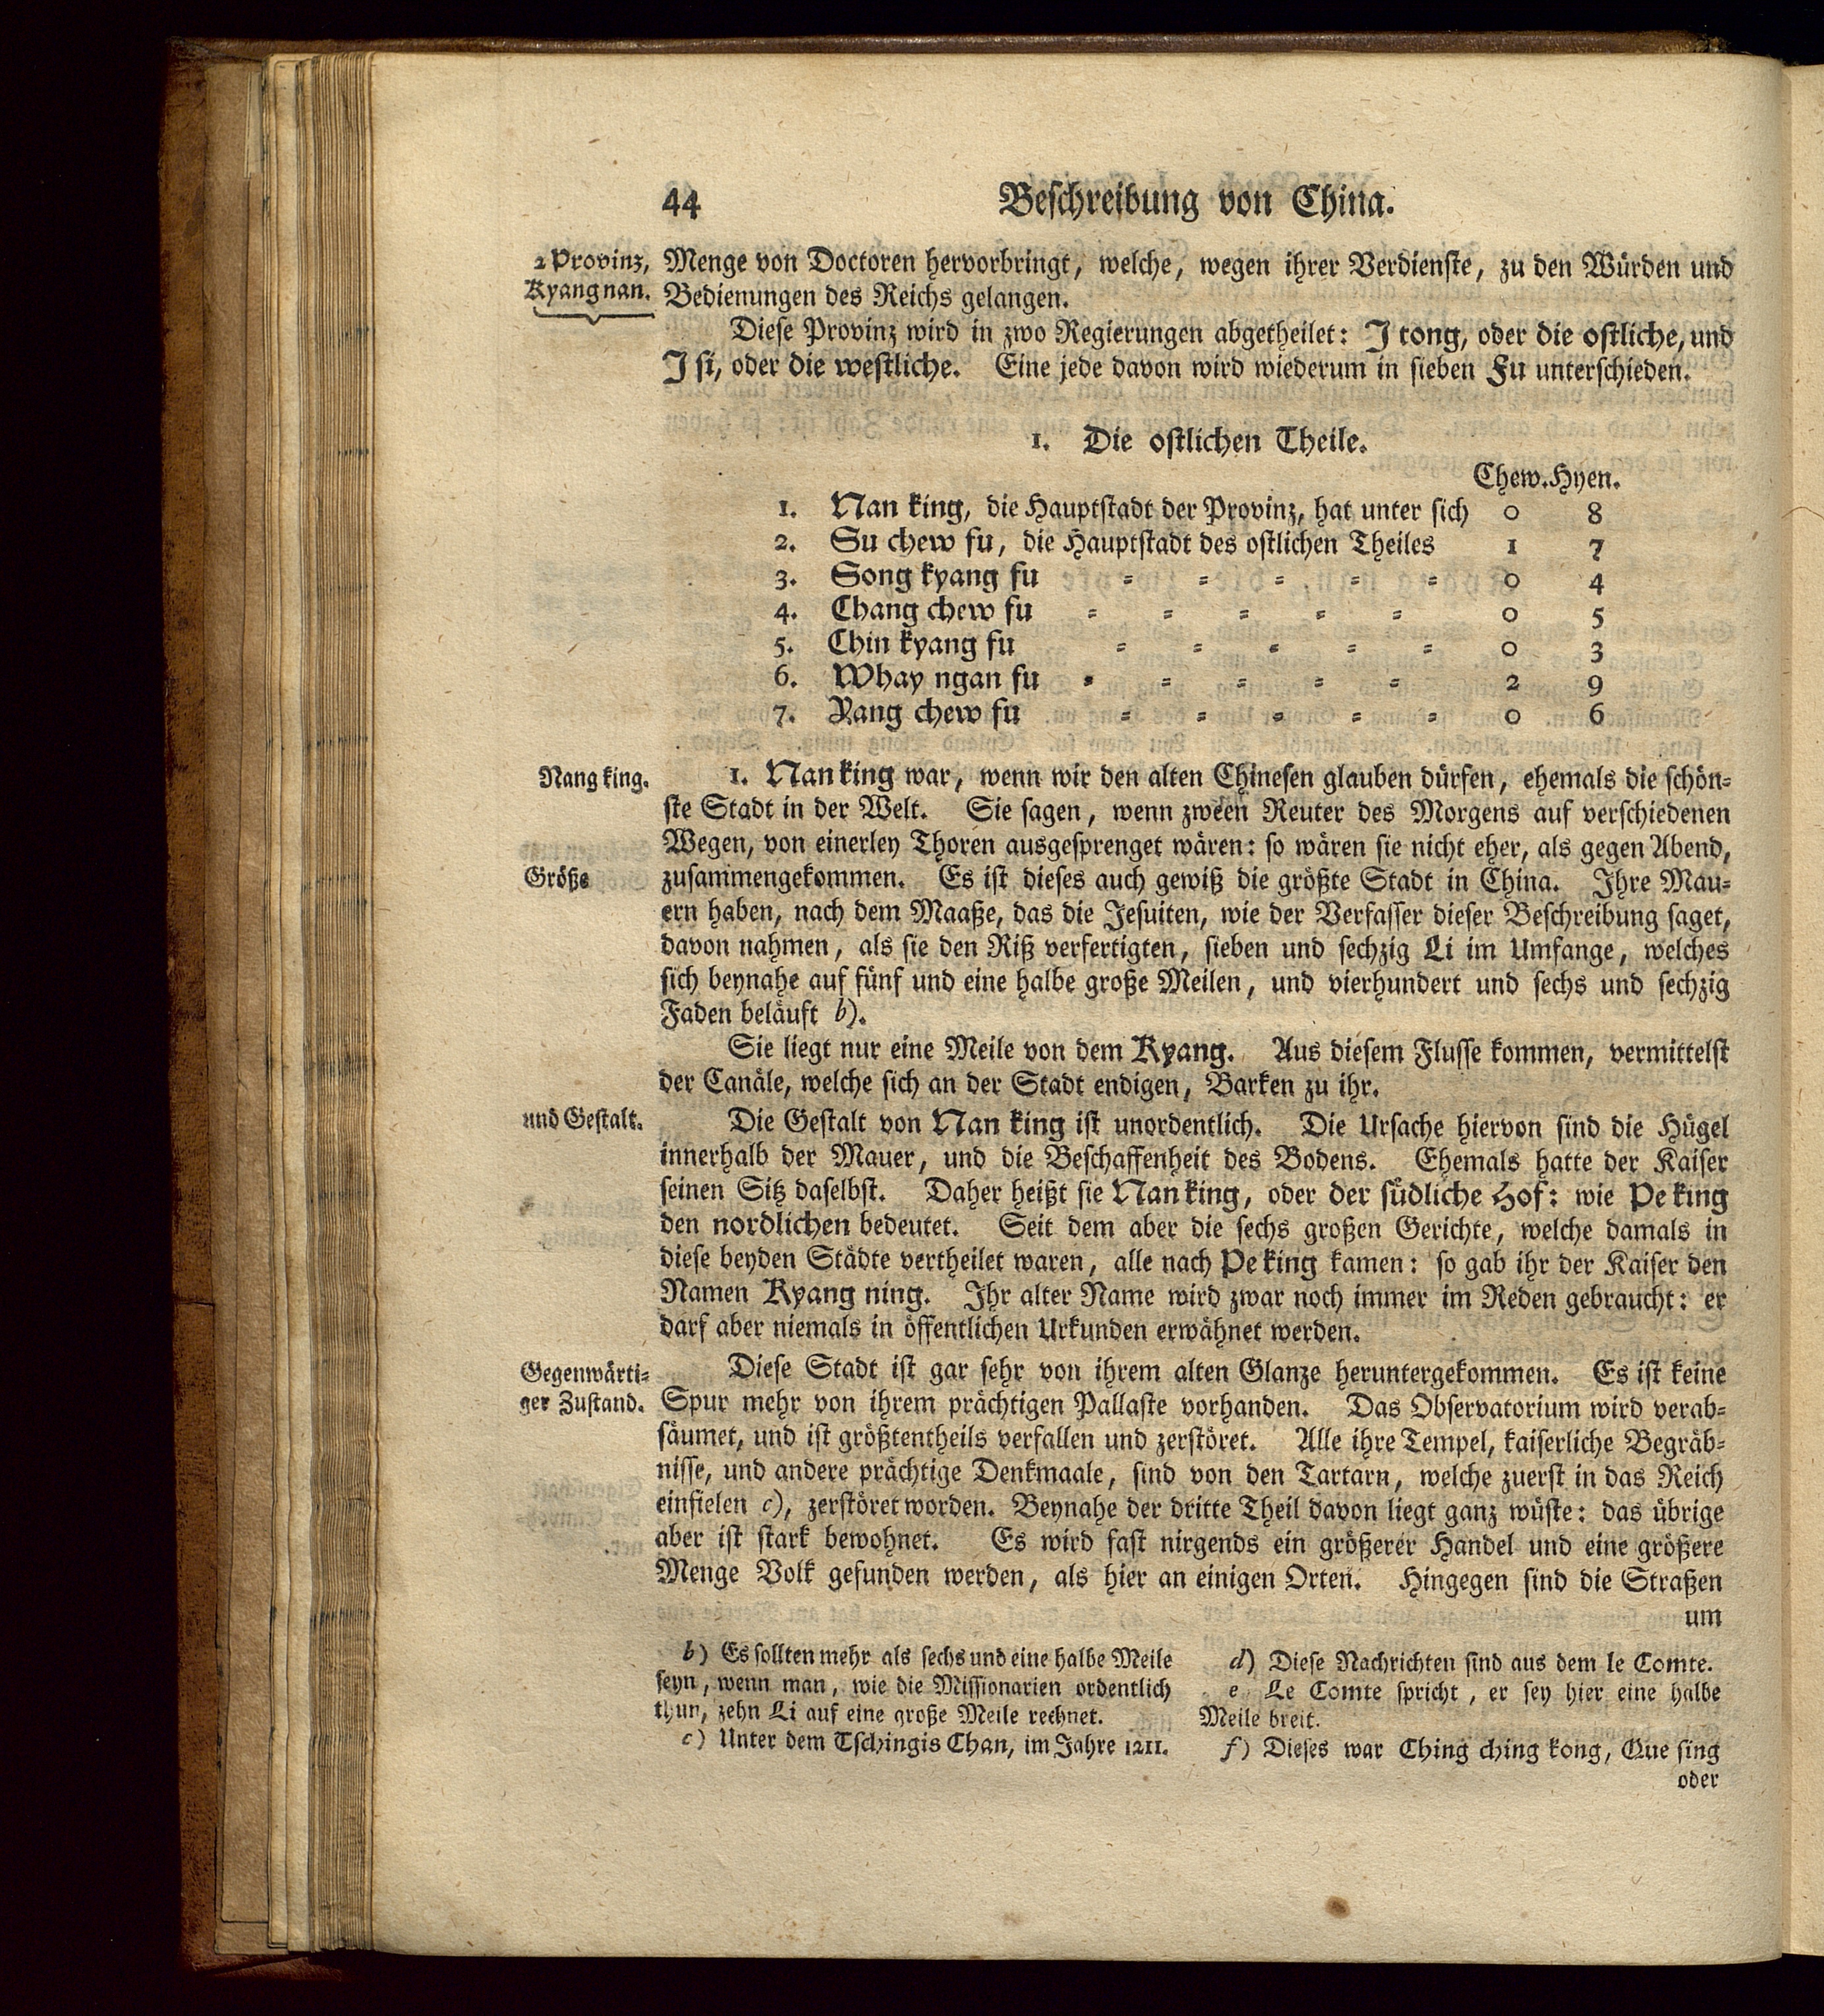 44 Beschreibung von China.
2 Provinz,
Kyang nan.
Menge von Doctoren hervorbringt, welche, wegen ihrer Verdienste, zu den Würden und
Bedienungen des Reichs gelangen.
Diese Provinz wird in zwo Regierungen abgetheilet: I tong, oder die ostliche, und
I si, oder die westliche. Eine jede davon wird wiederum in sieben Fu unterschieden.
1. Die ostlichen Theile.
Chew. Hyen.
1. Nan king, die Hauptstadt der Provinz, hat unter sich 0 8
2. Su chew fu, die Hauptstadt des ostlichen Theiles 1 7
3. Song kyang fu = = = = = 0 4
4. Chang chew fu = = = = = 0 5
5. Chin kyang fu = = = = = 0 3
6. Whay ngan fu = = = = = 2 9
7. Yang chew fu = = = = = 0 6
Nang king.
1. Nan king war, wenn wir den alten Chinesen glauben dürfen, ehemals die schön=
ste Stadt in der Welt. Sie sagen, wenn zween Reuter des Morgens auf verschiedenen
Wegen, von einerley Thoren ausgesprenget wären: so wären sie nicht eher, als gegen Abend,
Größe
zusammengekommen. Es ist dieses auch gewiß die größte Stadt in China. Ihre Mau=
ern haben, nach dem Maaße, das die Jesuiten, wie der Verfasser dieser Beschreibung saget,
davon nahmen, als sie den Riß verfertigten, sieben und sechzig Li im Umfange, welches
sich beynahe auf fünf und eine halbe große Meilen, und vierhundert und sechs und sechzig
Faden beläuft b).
Sie liegt nur eine Meile von dem Kyang. Aus diesem Flusse kommen, vermittelst
der Canäle, welche sich an der Stadt endigen, Barken zu ihr.
und Gestalt.
Die Gestalt von Nan king ist unordentlich. Die Ursache hiervon sind die Hügel
innerhalb der Mauer, und die Beschaffenheit des Bodens. Ehemals hatte der Kaiser
seinen Sitz daselbst. Daher heißt sie Nan king, oder der südliche Hof: wie Pe king
den nordlichen bedeutet. Seit dem aber die sechs großen Gerichte, welche damals in
diese beyden Städte vertheilet waren, alle nach Pe king kamen: so gab ihr der Kaiser den
Namen Kyang ning. Ihr alter Name wird zwar noch immer im Reden gebraucht: er
darf aber niemals in öffentlichen Urkunden erwähnet werden.
Gegenwärti=
ger Zustand.
Diese Stadt ist gar sehr von ihrem alten Glanze heruntergekommen. Es ist keine
Spur mehr von ihrem prächtigen Pallaste vorhanden. Das Observatorium wird verab=
säumet, und ist größtentheils verfallen und zerstöret. Alle ihre Tempel, kaiserliche Begräb=
nisse, und andere prächtige Denkmaale, sind von den Tartarn, welche zuerst in das Reich
einfielen c), zerstöret worden. Beynahe der dritte Theil davon liegt ganz wüste: das übrige
aber ist stark bewohnet. Es wird fast nirgends ein größerer Handel und eine größere
Menge Volk gefunden werden, als hier an einigen Orten. Hingegen sind die Straßen
um
b) Es sollten mehr als sechs und eine halbe Meile
seyn, wenn man, wie die Missionarien ordentlich
thun, zehn Li auf eine große Meile rechnet.
c) Unter dem Tschingis Chan, im Jahre 1211.
d) Diese Nachrichten sind aus dem le Comte.
e Le Comte spricht, er sey hier eine halbe
Meile breit.
f) Dieses war Ching ching kong, Que sing
oder